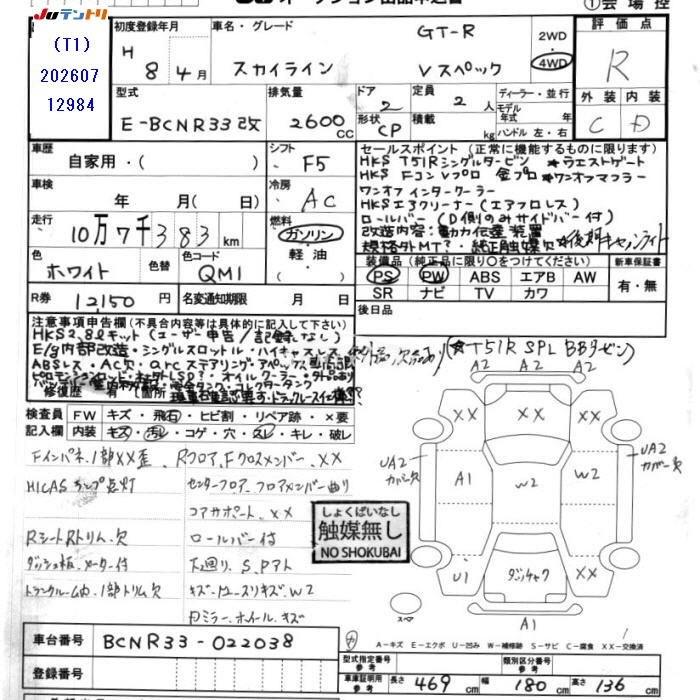 Juテントリ
①会場控
(T1)
202607
12984
初度登録年月
H
8年4月
車名・グレード
GT-R
スカイライン
Vスペック
2WD
4WD
評価点
R
外装 内装
C D
型式
E-BCNR33改
排気量
2600 CC
ドア
2
形状
CP
定員
2 人
積載
kg
ディーラー・並行
モデル
年式 年
ハンドル 左・右
車歴
自家用・( )
シフト
F5
車検
年 月( 日)
冷房
AC
走行
10万7千383km
燃料
ガソリン
軽油
( )
色
ホワイト
色替
色コード
QM1
R券
12,150円
名変通知期限 月 日
セールスポイント(正常に機能するものに限ります)
HKS T51Rシングルタービン ★ウエストゲート
HKS FコンVプロ 金プロ ★ワンオフマフラー
ワンオフインタークーラー
HKSエアクリーナー(エアフロレス)
ロールバー(D側のみサイドバー付)
改造内容:動力伝達装置
規格外MT?・純正触媒欠 ★後期キセノンライト
装備品(純正品に限り○をつけてください)
PS PW ABS エアB AW
SR ナビ TV カワ
新車保証書
有・無
後日品
注意事項申告欄(不具合内容等は具体的に記入して下さい)
HKS2.8ℓキット(ユーザー申告/記録なし)
(★T51R SPL BBタービン)
E/g内部改造・シングルスロットル・ハイキャスレス
ABSレス・AC欠・arcステアリング・アペックス
修復歴 有 (箇所
検査員
記入欄
FW キズ・飛石・ヒビ割・リペア跡・×要
内装 キズ・汚レ・コゲ・穴・スレ・キレ・破レ
Fインパネ、1部XX歪、Rフロア、Fクロスメンバー、XX
HICASランプ点灯
センターフロア、フロアメンバー曲り
コアサポート、XX
RシートRトリム、欠
ロールバー付
ダッシュ板、メーター付
下廻り、S、Pアト
トランクルーム内、1部トリム欠
キズ・W2
Dミラー、ホイール、キズ
しょくばいなし
触媒無し
NO SHOKUBAI
A2 A2 A2
XX XX
UA2
カバー欠
A1
W2
W2
UA2
カバー欠
U1
XX
スペア
A1
A-キズ E-エクボ U-凹み W-補修跡 S-サビ C-腐食 XX-交換済
車台番号
BCNR33-022038
登録番号
型式指定番号
参考
類別区分番号
参考
車庫証明用
参考
長さ 469 cm 幅 180 cm 高さ 136 cm